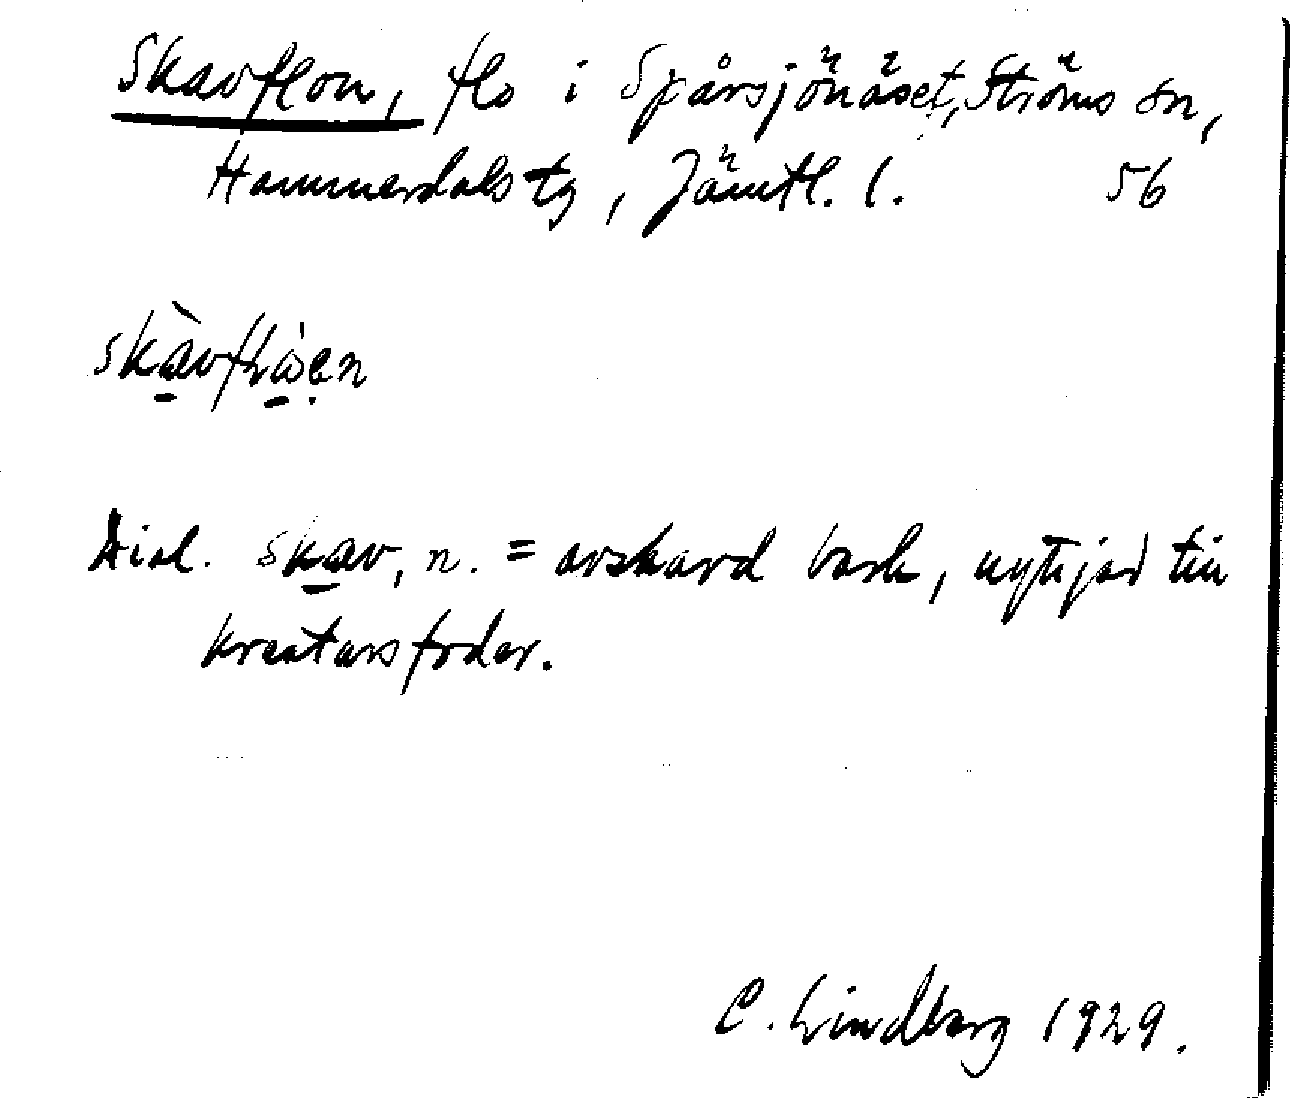 Skavflon, flo i Spårsjönäset, Ströms sn,
Hammerdals tg, Jämtl. l. 56
Dial. skav, n. = avskavd bark, nyttjad till
kreatursfoder.
C. Lindberg 1929.